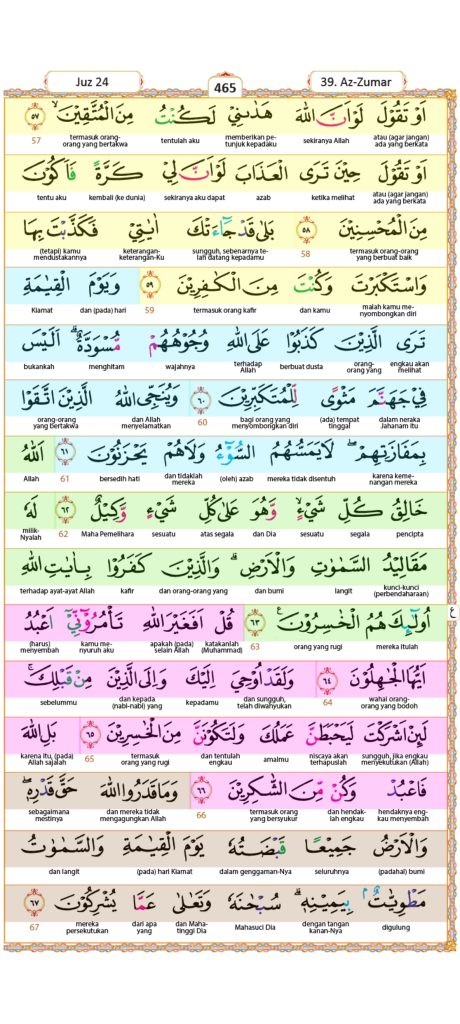 Juz 24
465
39. Az-Zumar
اَوْ تَقُوْلَ لَوْ اَنَّ اللّٰهَ هَدٰىنِيْ لَكُنْتُ مِنَ الْمُتَّقِيْنَ ۙ ٥٧
atau (agar jangan) ada yang berkata sekiranya Allah memberikan petunjuk kepadaku tentulah aku termasuk orang-orang yang bertakwa 57
اَوْ تَقُوْلَ حِيْنَ تَرَى الْعَذَابَ لَوْ اَنَّ لِيْ كَرَّةً فَاَكُوْنَ
atau (agar jangan) ada yang berkata ketika melihat azab sekiranya aku dapat kembali (ke dunia) tentu aku
مِنَ الْمُحْسِنِيْنَ ٥٨ بَلٰى قَدْ جَاۤءَتْكَ اٰيٰتِيْ فَكَذَّبْتَ بِهَا
termasuk orang-orang yang berbuat baik 58 sungguh, sebenarnya telah datang kepadamu keterangan-keterangan-Ku (tetapi) kamu mendustakannya
وَاسْتَكْبَرْتَ وَكُنْتَ مِنَ الْكٰفِرِيْنَ ٥٩ وَيَوْمَ الْقِيٰمَةِ
malah kamu menyombongkan diri dan kamu termasuk orang kafir 59 dan (pada) hari Kiamat
تَرَى الَّذِيْنَ كَذَبُوْا عَلَى اللّٰهِ وُجُوْهُهُمْ مُّسْوَدَّةٌ ۗ اَلَيْسَ
engkau akan melihat orang-orang yang berbuat dusta terhadap Allah wajahnya menghitam bukankah
فِيْ جَهَنَّمَ مَثْوًى لِّلْمُتَكَبِّرِيْنَ ٦٠ وَيُنَجِّى اللّٰهُ الَّذِيْنَ اتَّقَوْا
dalam neraka Jahanam itu (ada) tempat tinggal bagi orang yang menyombongkan diri 60 dan Allah menyelamatkan orang-orang yang bertakwa
بِمَفَازَتِهِمْ ۖ لَا يَمَسُّهُمُ السُّوْۤءُ وَلَا هُمْ يَحْزَنُوْنَ ٦١ اَللّٰهُ
karena kemenangan mereka mereka tidak disentuh (oleh) azab dan tidaklah mereka bersedih hati 61 Allah
خَالِقُ كُلِّ شَيْءٍ ۙ وَّهُوَ عَلٰى كُلِّ شَيْءٍ وَّكِيْلٌ ٦٢ لَهٗ
pencipta segala sesuatu dan Dia atas segala sesuatu Maha Pemelihara 62 milik-Nyalah
مَقَالِيْدُ السَّمٰوٰتِ وَالْاَرْضِ ۗ وَالَّذِيْنَ كَفَرُوْا بِاٰيٰتِ اللّٰهِ
kunci-kunci (perbendaharaan) langit dan bumi dan orang-orang yang kafir terhadap ayat-ayat Allah
اُولٰۤىِٕكَ هُمُ الْخٰسِرُوْنَ ٦٣ قُلْ اَفَغَيْرَ اللّٰهِ تَأْمُرُوْۤنِّيْٓ اَعْبُدُ ع
mereka itulah orang yang rugi 63 katakanlah (Muhammad) apakah (pada) selain Allah kamu menyuruh aku (harus) menyembah
اَيُّهَا الْجٰهِلُوْنَ ٦٤ وَلَقَدْ اُوْحِيَ اِلَيْكَ وَاِلَى الَّذِيْنَ مِنْ قَبْلِكَ ۚ
wahai orang-orang yang bodoh 64 dan sungguh, telah diwahyukan kepadamu dan kepada (nabi-nabi) yang sebelummu
لَىِٕنْ اَشْرَكْتَ لَيَحْبَطَنَّ عَمَلُكَ وَلَتَكُوْنَنَّ مِنَ الْخٰسِرِيْنَ ٦٥ بَلِ اللّٰهَ
sungguh, jika engkau menyekutukan (Allah) niscaya akan terhapuslah amalmu dan tentulah engkau termasuk orang yang rugi 65 karena itu, (pada) Allah sajalah
فَاعْبُدْ وَكُنْ مِّنَ الشّٰكِرِيْنَ ٦٦ وَمَا قَدَرُوا اللّٰهَ حَقَّ قَدْرِهٖ ۖ
hendaknya engkau menyembah dan hendaklah engkau termasuk orang yang bersyukur 66 dan mereka tidak mengagungkan Allah sebagaimana mestinya
وَالْاَرْضُ جَمِيْعًا قَبْضَتُهٗ يَوْمَ الْقِيٰمَةِ وَالسَّمٰوٰتُ
(padahal) bumi seluruhnya dalam genggaman-Nya (pada) hari Kiamat dan langit
مَطْوِيّٰتٌۢ بِيَمِيْنِهٖ ۗ سُبْحٰنَهٗ وَتَعٰلٰى عَمَّا يُشْرِكُوْنَ ٦٧
digulung dengan tangan kanan-Nya Mahasuci Dia dan Mahatinggi Dia dari apa yang mereka persekutukan 67